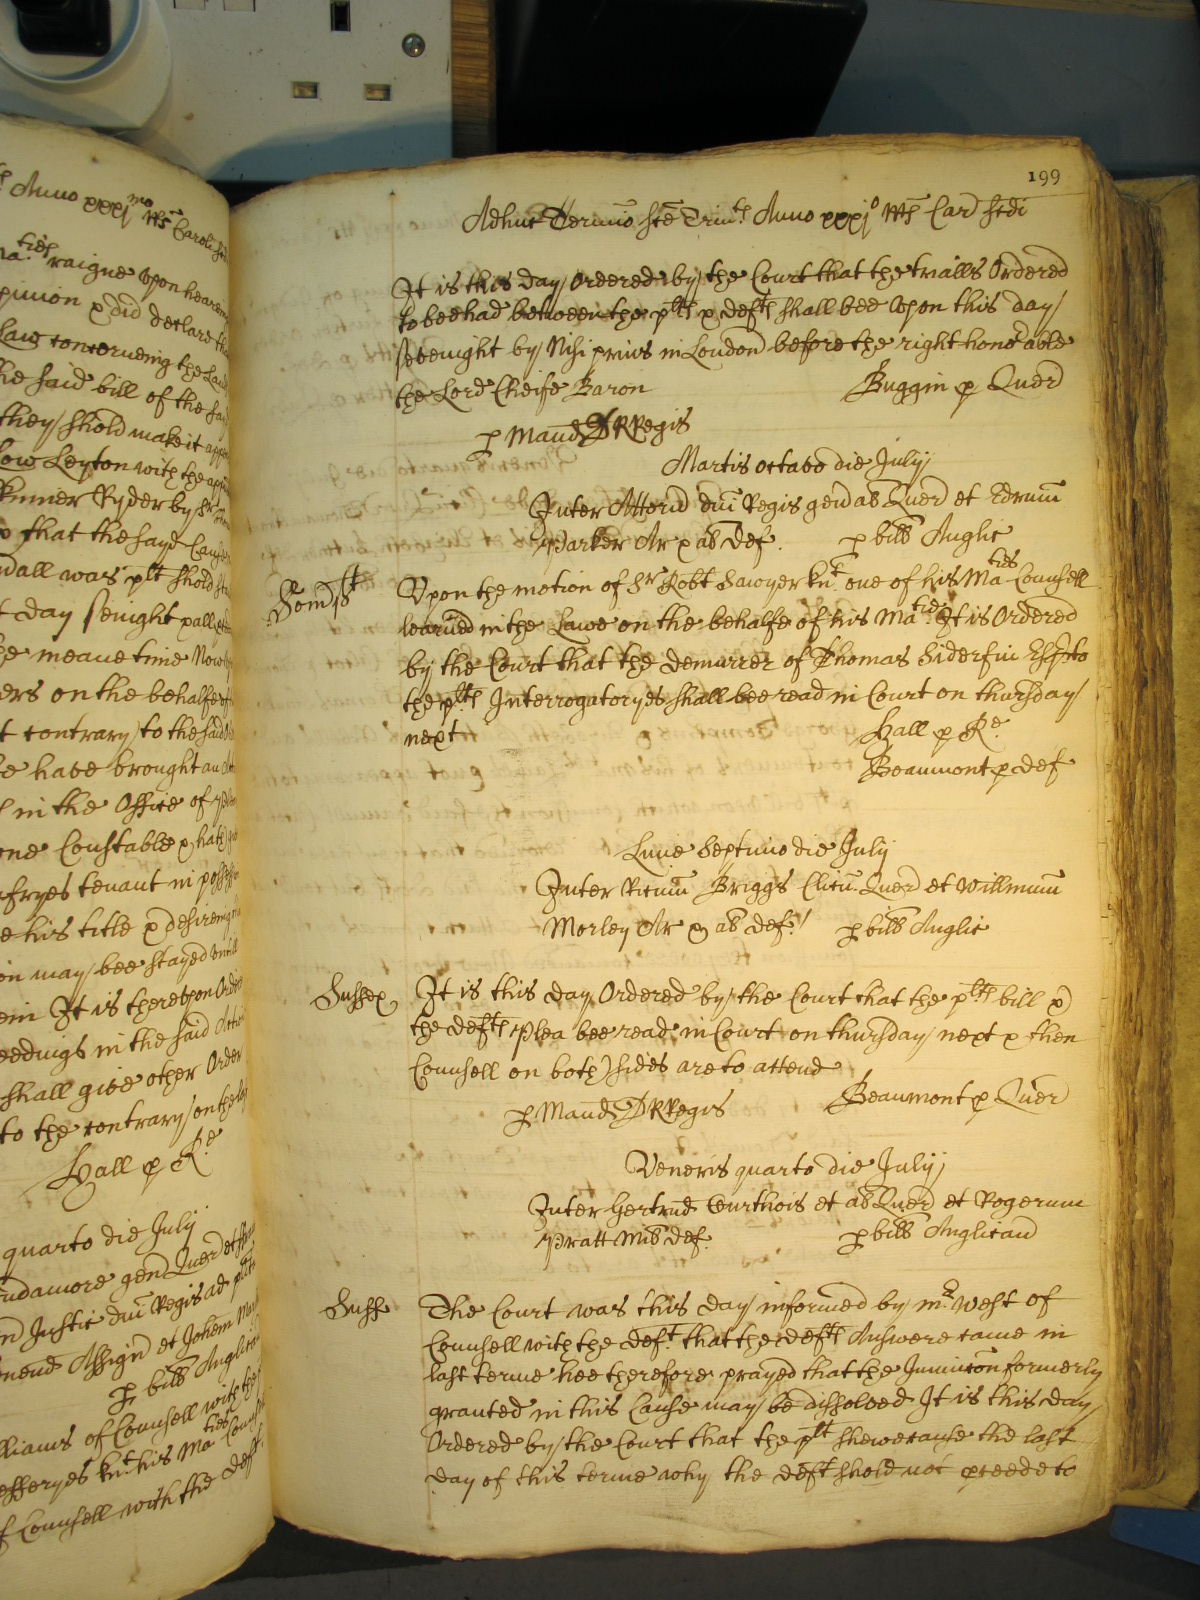 Anno xxxj mo Rs Caroli
ties raigne upon hearing
pinion & did declare
Law concerneing the
he said bill of the
they shold make it
Low Leyton with the
kinner Ryder by Sr
that the sayd Cause
dall was plt shold
t day sevnight & all
he meane time Now
ers on the behalfe of
t contrary to the said
e have brought an
in the Office of
one Constable & hath
tenant in
e his title & desireing
on may bee stayed untill
It is thereupon
eedings in the said
shall give other Order
to the contrary on the
Hall p Re
quarto die July
damore gen Quer et
Justic dni Regis ad
Assign et Johem
p bill Anglic
lliams of Counsell with the
efferyes knt his Maties
f Counsell with the deft
199
Adhuc Termino Ste Trinit Anno xxxjo Rs Car Scdi
It is this day Ordered by the Court that the trialls Ordered
to bee had betweene the plts & defts shall bee upon this day
sevenight by Nisi prius in London before the right honorable
the Lord Cheife Baron Buggin p Quer
p Mand DRRegis
Martis octavo die July
Inter Attorn dni Regis gen ab Quer et Edrum
Parker Ar & ab def. p bill Anglic
Somst Upon the motion of Sr Robt Sawyer knt one of his Maties Counsell
learned in the Lawe on the behalfe of his Matie It is Ordered
by the Court that the demurrer of Thomas Siderfin Esqr to
the plts Interrogatoryes shall bee read in Court on thursday
next Hall p Re.
Beaumont p def
Lune Septimo die July
Inter Ricum Briggs Clicu Quer et Willmum
Morley Ar & ab def. p bill Anglic
Sussex It is this day Ordered by the Court that the plts bill &
the defts Plea bee read in Court on thursday next & then
Counsell on both sides are to attend
p Mand DRRegis Beaumont p Quer
Veneris quarto die July
Inter Gertrud Courthois et ab Quer et Rogerum
Pratt Mil def. p bill Anglican
Suss The Court was this day informed by mr West of
Counsell with the deft. that the defts Answere came in
last terme hee therefore prayed that the Inunicon formerly
granted in this Cause may be dissolved It is this day
Ordered by the Court that the plt shewe cause the last
day of this terme why the deft shold not proceede to